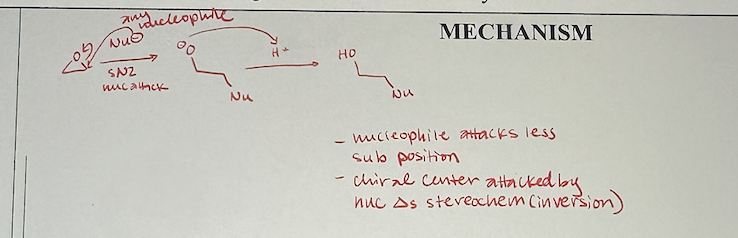 any
nucleophile
MECHANISM
O
Nu⊖
SN2
nuc attack
⊖O
Nu
H+
HO
Nu
- nucleophile attacks less
sub position
- chiral center attacked by
nuc Δs stereochem (inversion)